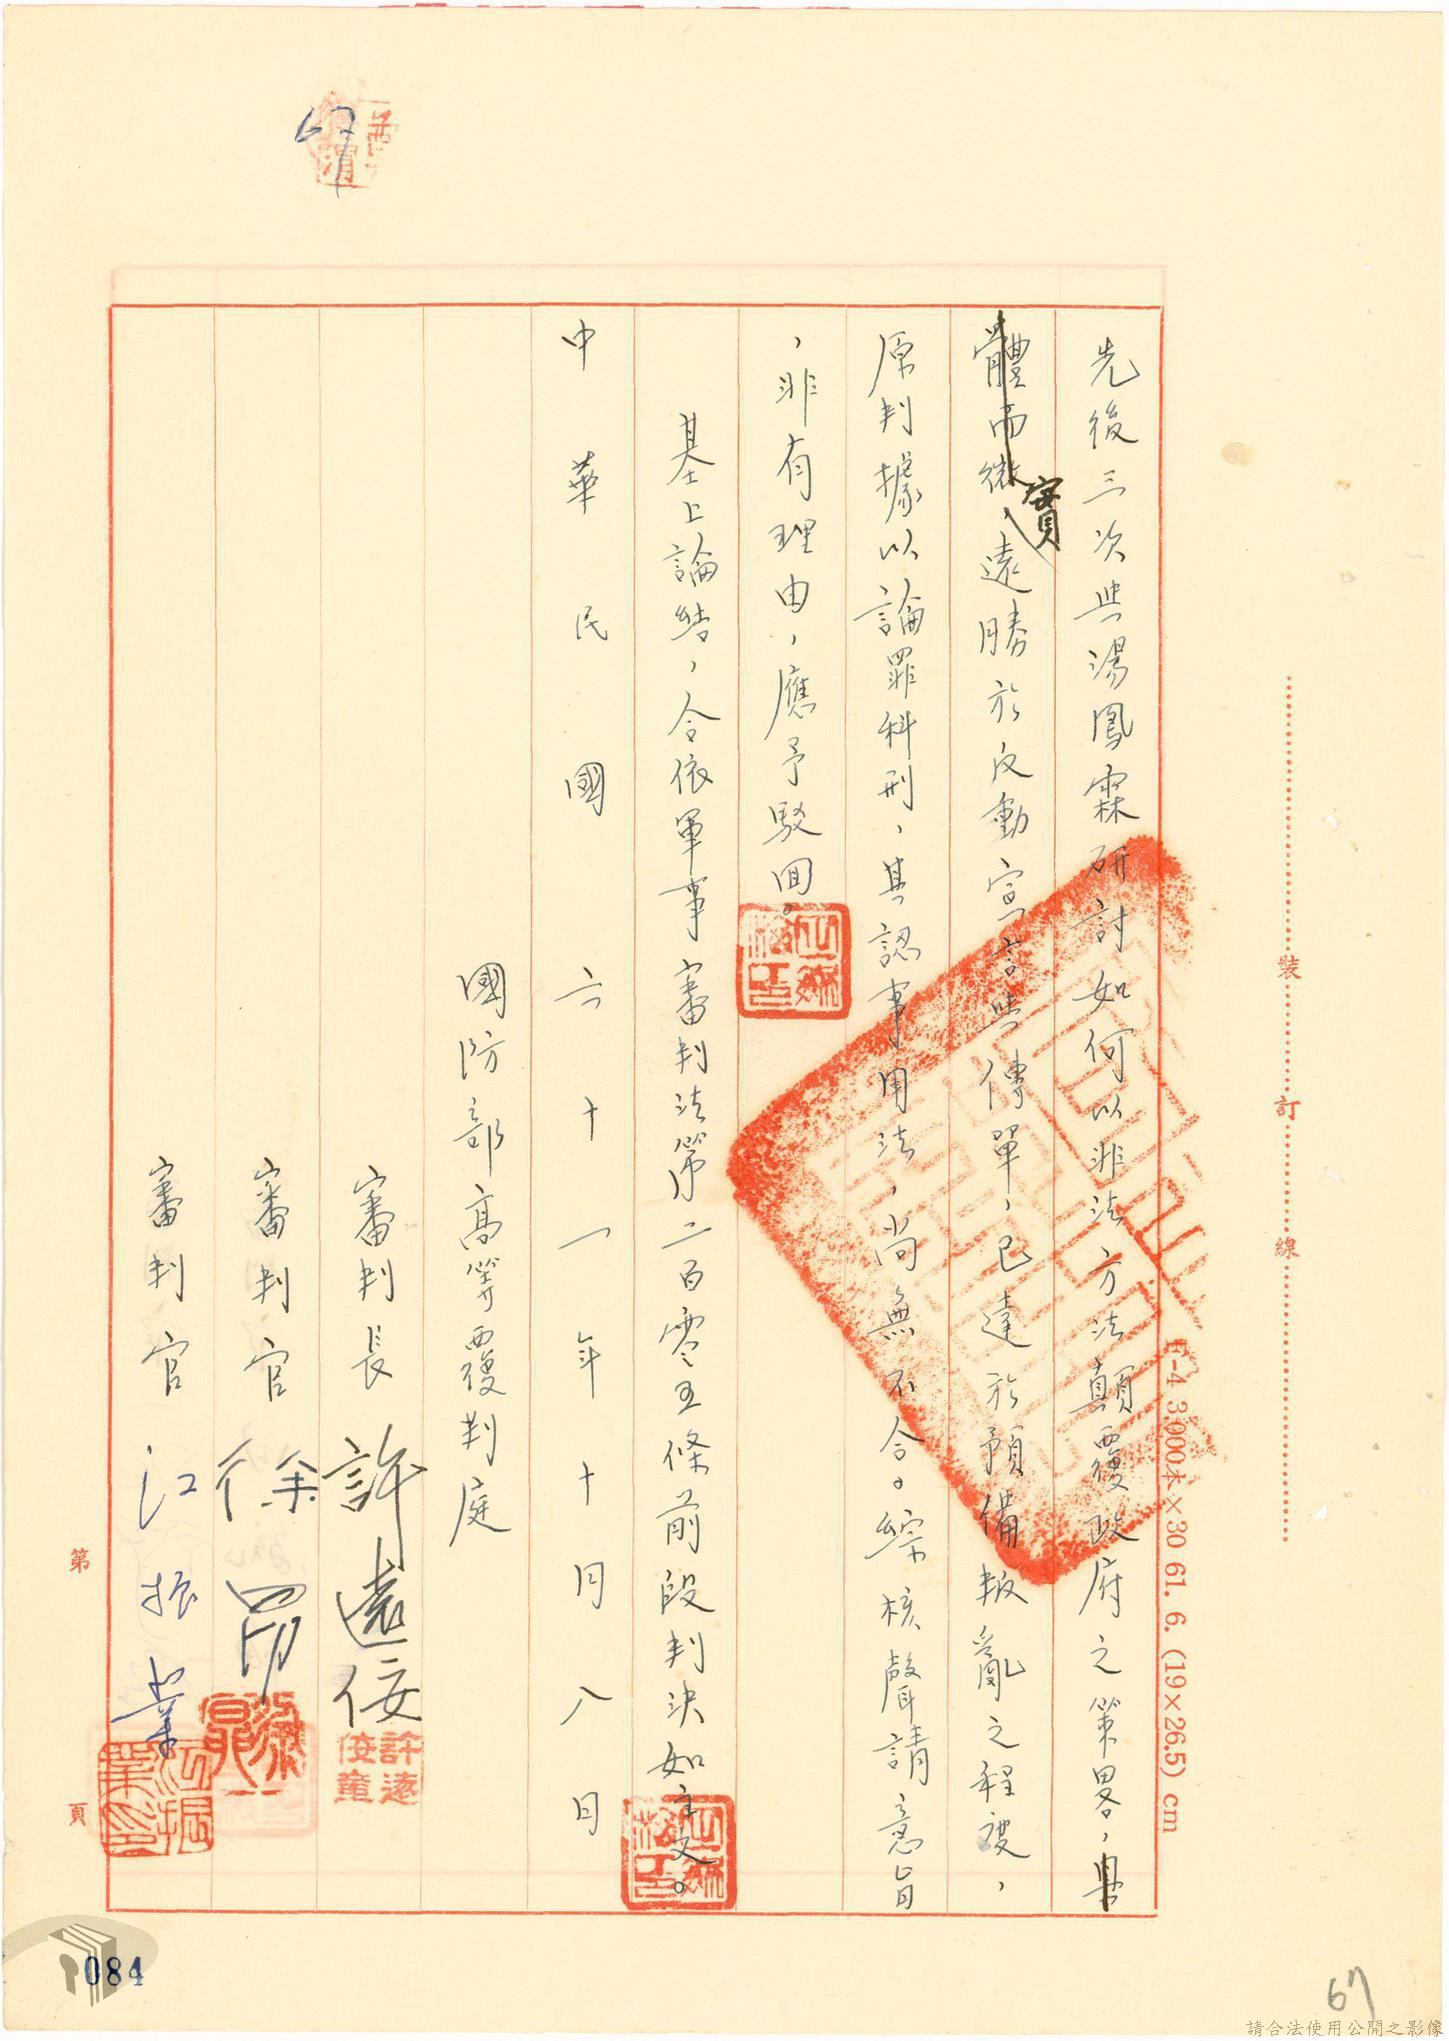 先後三次與湯鳳霖研討如何以非法方法顛覆政府之策畧,具
體而微,實遠勝於反動宣言與傳單,已達於預備叛亂之程度,
原判據以論罪科刑,其認事用法,尚無不合。綜核聲請意旨
,非有理由,應予駁回。
基上論結,合依軍事審判法第二百零五條前段判決如主文。
中華民國六十一年十月十八日
國防部高等覆判庭
審判長 許遠佞
許遠佞章
審判官 徐
審判官 江振業
江振業印
裝 訂 線
F-4 3,000本×30 61. 6. (19×26.5) cm
第 頁
084
67
請合法使用公開之影像